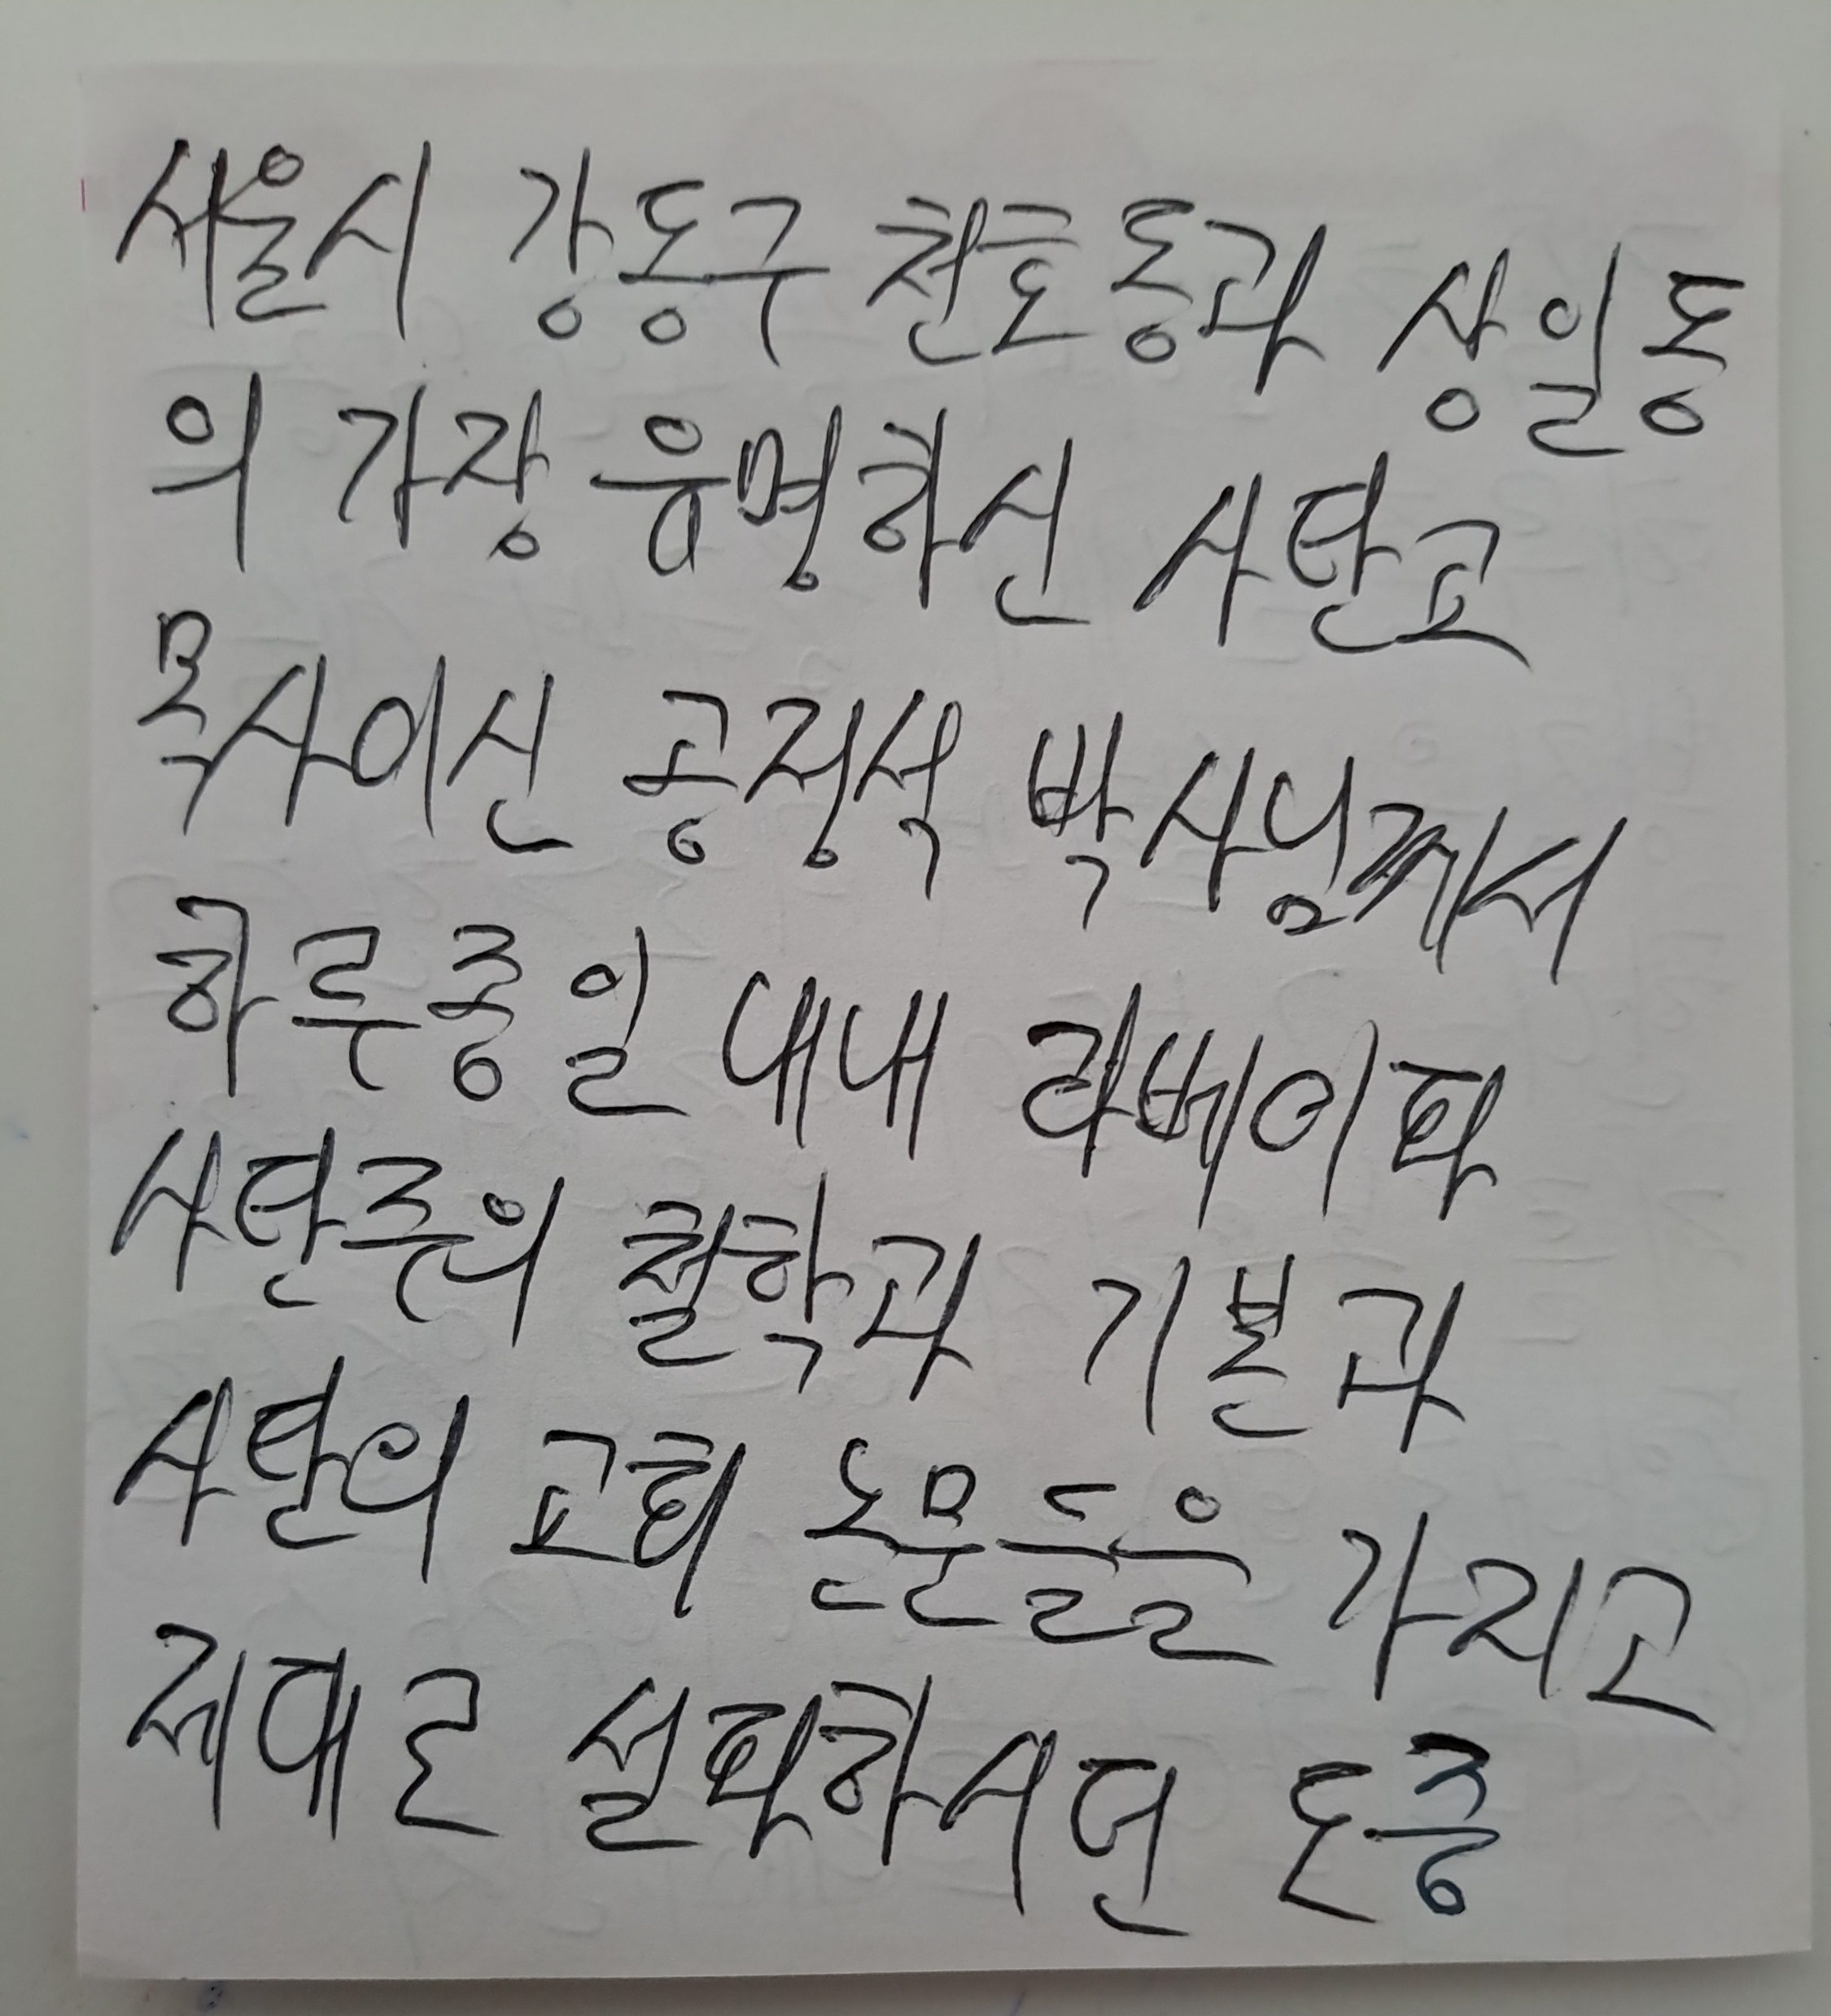 서울시 강동구 천호동과 상일동
의 가장 유명하신 사탄교
목사이신 공정석 박사님께서
하루종일 내내 라베이파
사탄주의 철학과 기본과
사탄의 교회 논문들을 가지고
제대로 설파하시던 도중